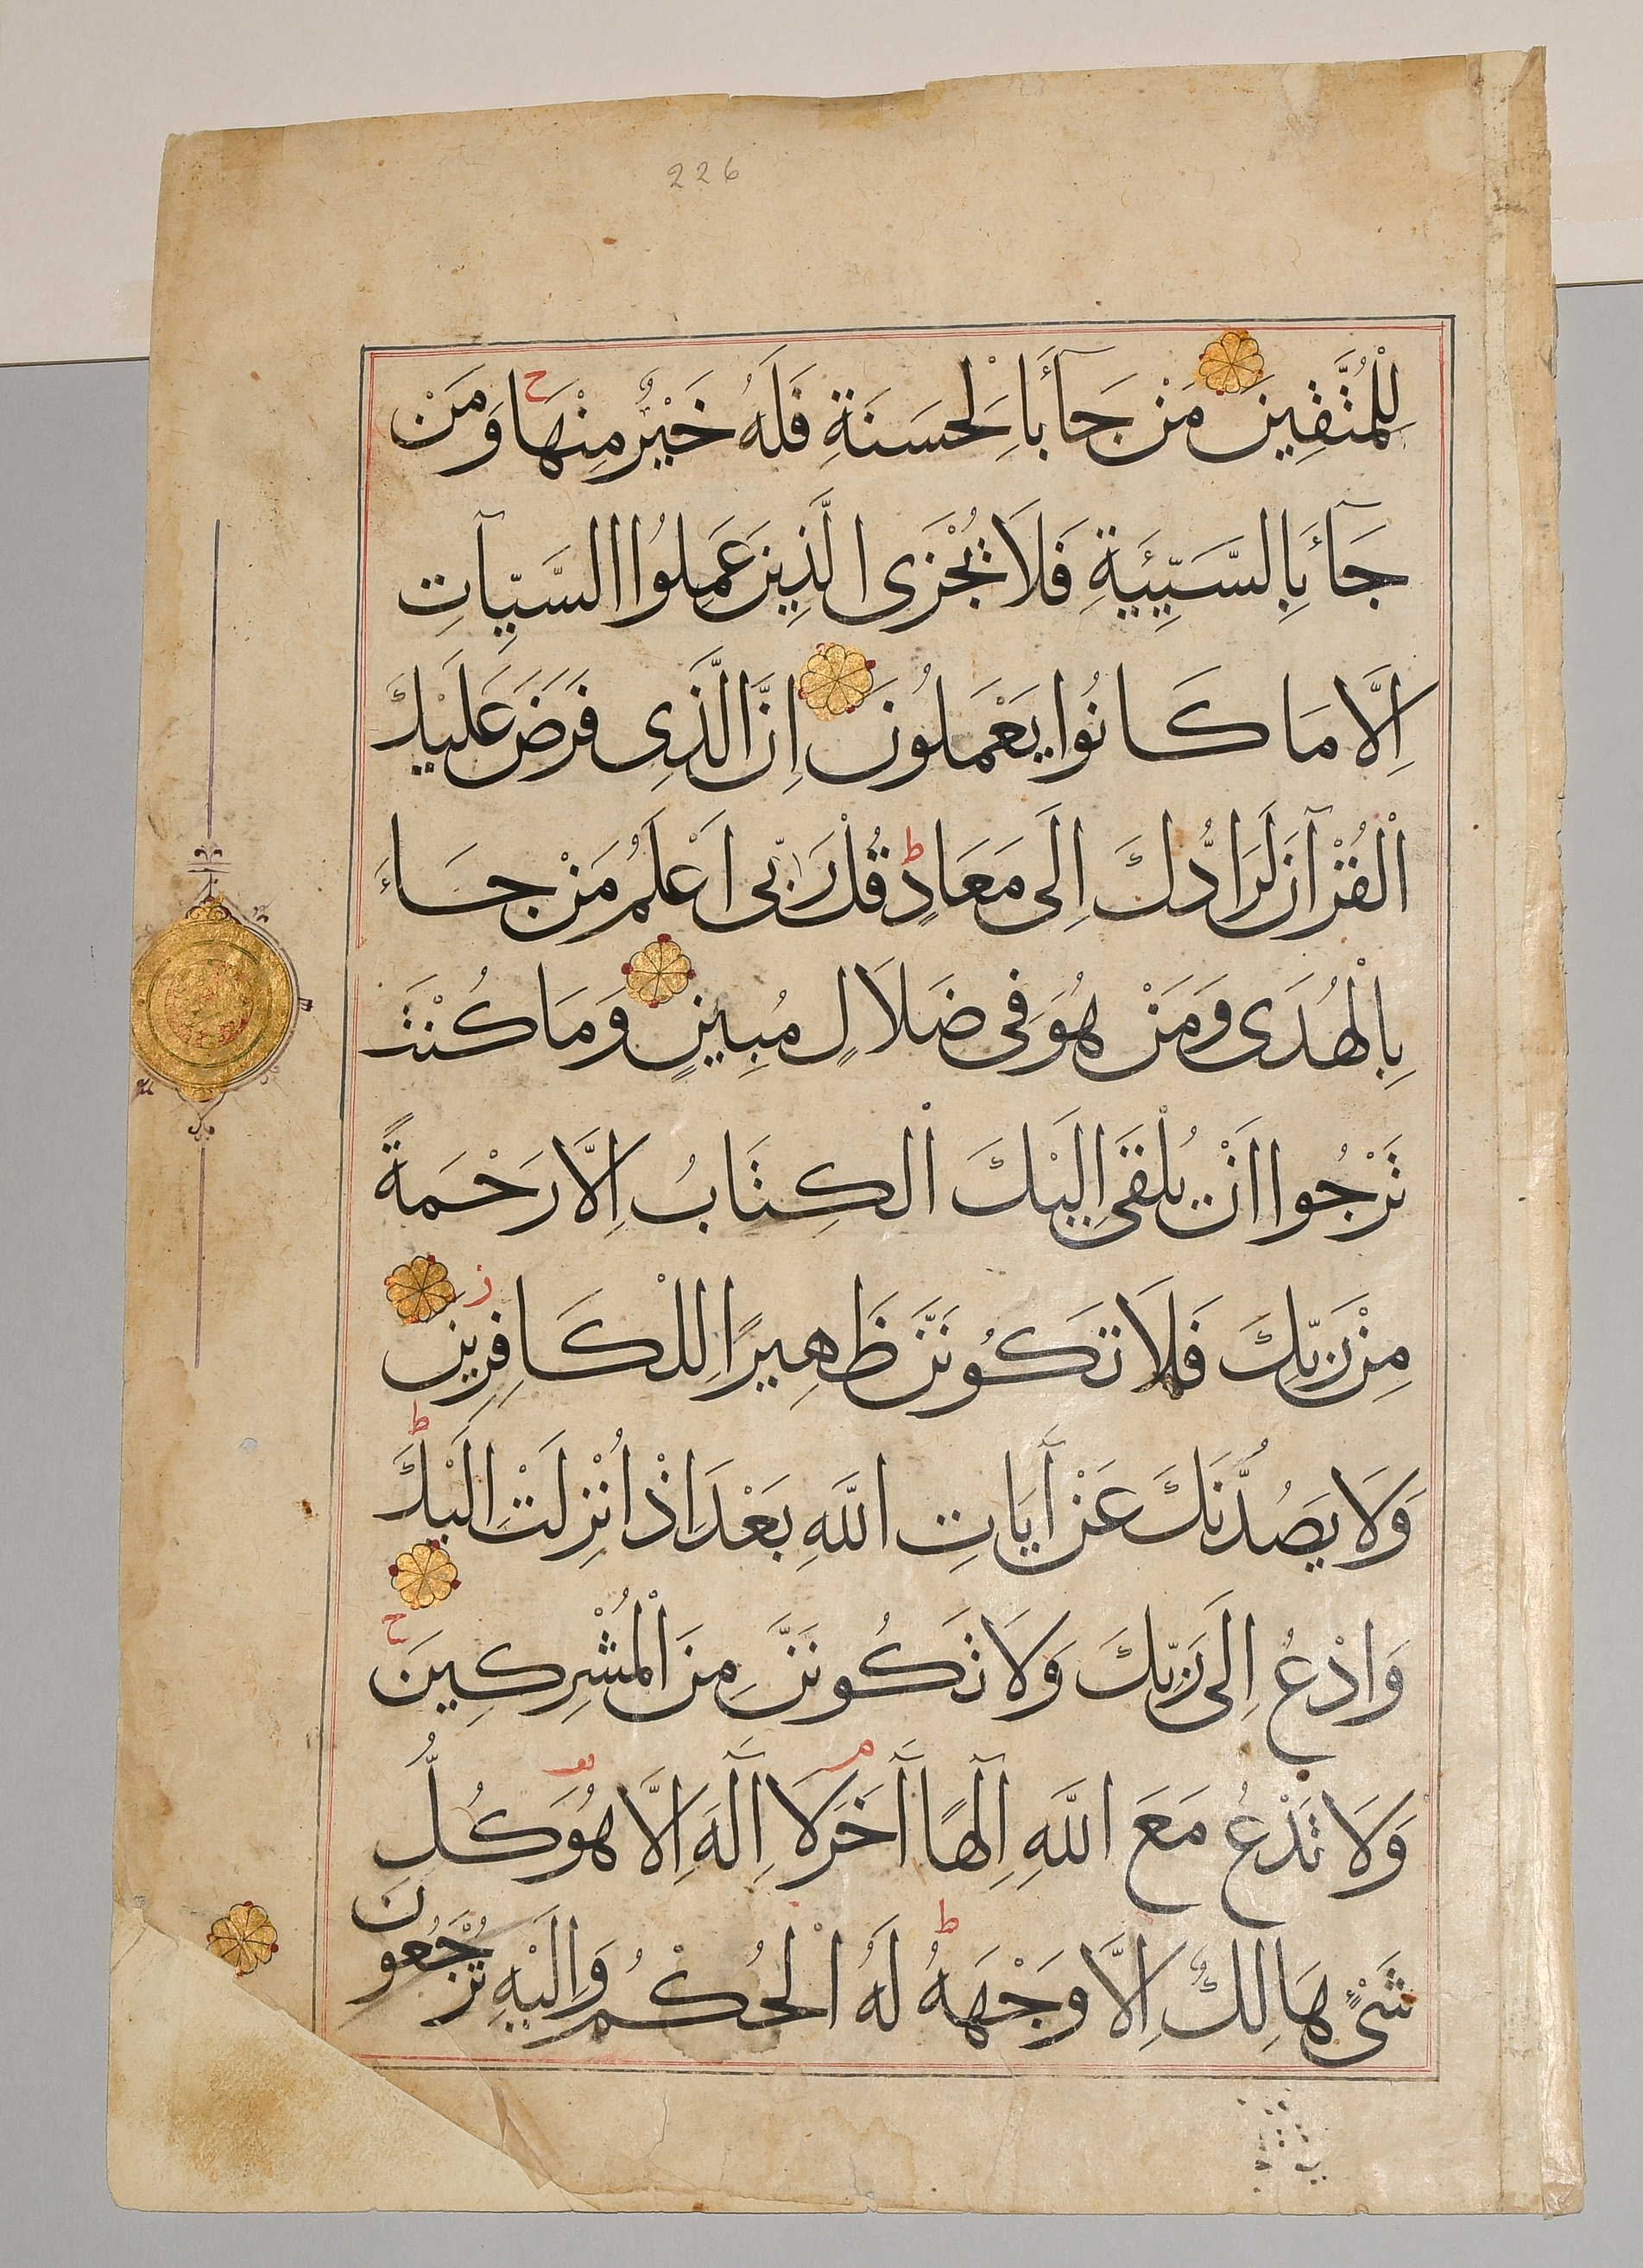 226
لِلْمُتَّقِينَ مَنْ جَآءَ بِالْحَسَنَةِ فَلَهُ خَيْرٌ مِنْهَا ح وَمَنْ
جَآءَ بِالسَّيِّئَةِ فَلَا يُجْزَى الَّذِينَ عَمِلُوا السَّيِّآتِ
اِلَّا مَا كَانُوا يَعْمَلُونَ اِنَّ الَّذِى فَرَضَ عَلَيْكَ
الْقُرْآنَ لَرَادُّكَ اِلَى مَعَادٍ ط قُلْ رَبِّى اَعْلَمُ مَنْ جَاءَ
بِالْهُدَى وَمَنْ هُوَ فِى ضَلَالٍ مُبِينٍ وَمَا كُنْتَ
تَرْجُوا اَنْ يُلْقَى اِلَيْكَ الْكِتَابُ اِلَّا رَحْمَةً
مِنْ رَبِّكَ فَلَا تَكُونَنَّ ظَهِيرًا لِلْكَافِرِينَ ز
وَلَا يَصُدُّنَّكَ عَنْ آيَاتِ اللَّهِ بَعْدَ اِذْ اُنْزِلَتْ اِلَيْكَ ط
وَادْعُ اِلَى رَبِّكَ وَلَا تَكُونَنَّ مِنَ الْمُشْرِكِينَ ح
وَلَا تَدْعُ مَعَ اللَّهِ اِلٰهًا آخَرَ م لَا اِلٰهَ اِلَّا هُوَ كُلُّ
شَىْءٍ هَالِكٌ اِلَّا وَجْهَهُ ط لَهُ الْحُكْمُ وَاِلَيْهِ تُرْجَعُونَ